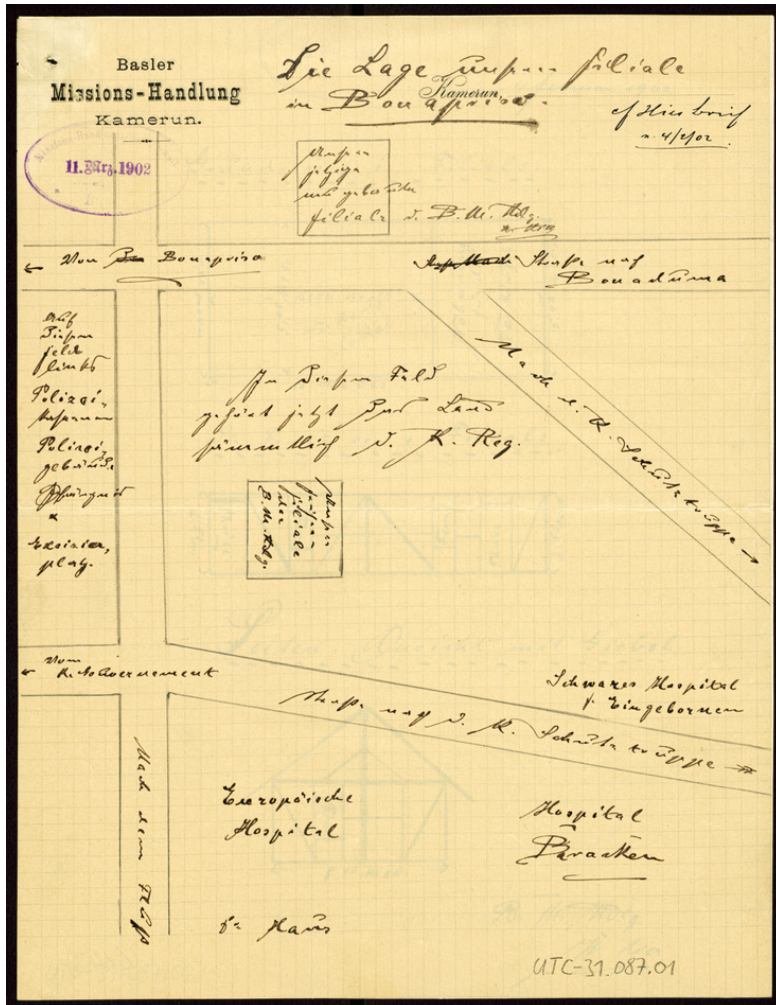 Basler
Missions-Handlung
Kamerun.
Die Lage unserer Filiale
Kamerun,
in Bonapriso.
cf Hins brief
v. 4/2/02.
11. März. 1902
Unsere
jetzige
neu gebaute
Filiale d. B. M. Hdlg.
← Von Bonapriso
Straße nach
Bonaduma
Auf
diesem
Feld
links
Polizei-
kasernen
Polizei-
gebäude
Gefängnis
&
Exerzier-
platz.
In diesem Feld
gehört jetzt das Land
sämmtlich d. K. Reg.
Nach d. K. Schutztruppe →
Unsere
frühere
Filiale
der
B. M. Hdlg.
← Vom
K. Gouvernement
Schwarzes Hospital
f. Eingebornen
Straße nach d. K. Schutztruppe
Nach dem Fluß
Europäische
Hospital
Hospital
Baracken
Haus
UTC-31.087.01